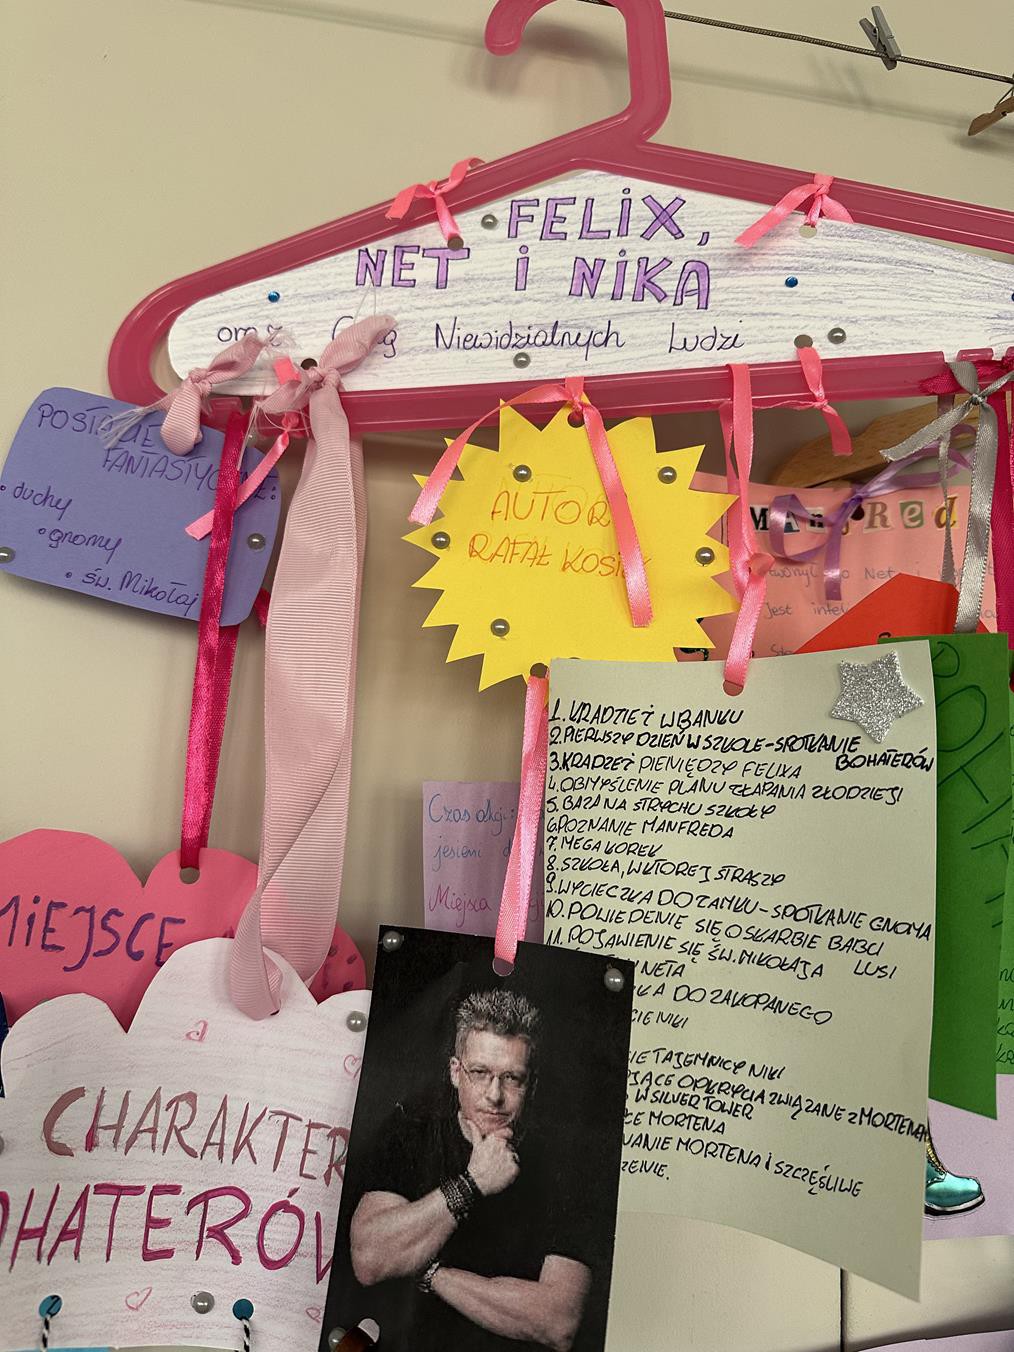 FELIX,
NET i NIKA
oraz Gang Niewidzialnych Ludzi
POSTACIE
FANTASTYCZNE:
• duchy
• gnomy
• św. Mikołaj
AUTOR
RAFAŁ KOSIK
MANFRED
Net i
Jest
1. KRADZIEŻ W BANKU
2. PIERWSZY DZIEŃ W SZKOLE - SPOTKANIE
BOHATERÓW
3. KRADZIEŻ PIENIĘDZY FELIXA
4. OBMYŚLENIE PLANU ZŁAPANIA ZŁODZIEJI
5. BAZA NA STRYCHU SZKOŁY
6. POZNANIE MANFREDA
7. MEGA KOREK
8. SZKOŁA, W KTÓREJ STRASZY
9. WYCIECZKA DO ZAMKU - SPOTKANIE GNOMA
10. POWIEDENIE SIĘ O SKARBIE BABCI
LUSI
11. POJAWIENIE SIĘ ŚW. MIKOŁAJA
NETA
KA DO ZAKOPANEGO
CIE NIKI
IE TAJEMNICY NIKI
JĄCE ODKRYCIA ZWIĄZANE Z MORTENEM
W SILVER TOWER
CE MORTENA
WANIE MORTENA I SZCZĘŚLIWE
ZENIE.
Czas akcji:
jesień
Miejsca
MIEJSCE
CHARAKTER
OHATERÓW